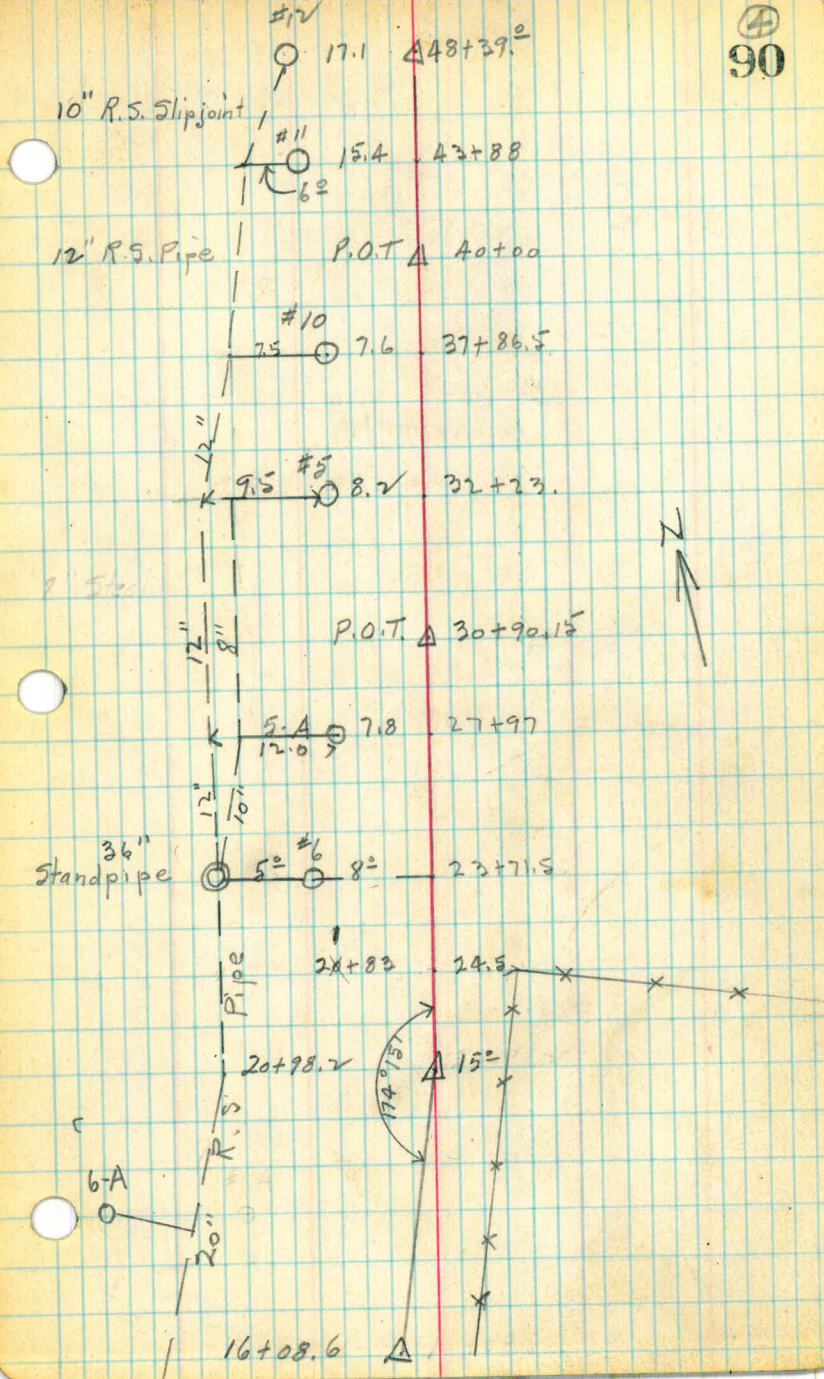 ④
90
#12
17.1 48+39.º
10" R.S. Slipjoint
#11
15.4 43+88
6º
12" R.S. Pipe P.O.T 40+00
#10
7.5 7.6 37+86.5
12"
#5
9.5 8.2 32+23.
N
12" 8"
P.O.T. 30+90.15
5-A 7.8 27+97
12.0
12" 10"
36"
Standpipe
#6
5º 8º 23+71.5
21+83 24.5
20+98.2 15º
174°15'
6-A
20" R.S Pipe
16+08.6